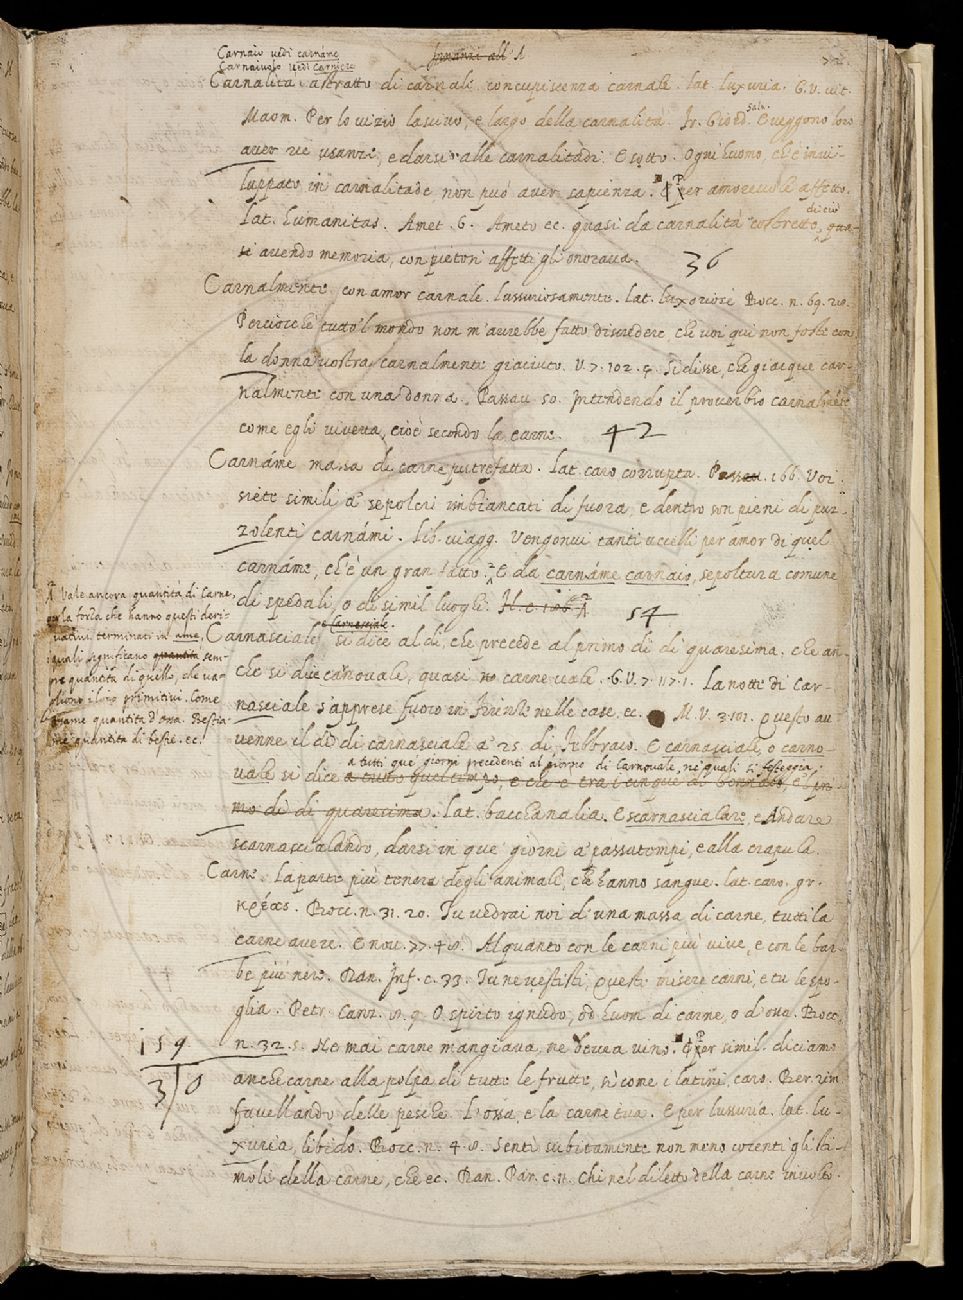 Carnaio vedi carname
Carnaiuolo vedi Carniere
Innanzi all' A
Carnalità astratto di carnale concupiscenza carnale. lat. luxuria. G. V. vit.
Maom. Per lo vizio lascivo, e largo della carnalità. Fr. Giord. salv. E veggono loro
aver ree usanze, e darsi alle carnalitadi. E sotto. Ogni huomo, ch'è invi-
luppato in carnalitade non può aver sapienza. P per amorevole affetto.
lat. humanitas. Amet. 6. Ameto ec. quasi da carnalità costretto, di ciò qua-
si avendo memoria, con pietosi affetti gli onorava.
36
Carnalmente con amor carnale. lussuriosamente. lat. luxoriose Bocc. n. 69. 28.
Perciocchè tutto 'l mondo non m'avrebbe fatto discredere, che voi qui non foste con
la donna vostra carnalmente giaciuto. V. 7. 102. 4. Si disse, che giacque car-
nalmente con una donna. Passav. 50. Intendendo il proverbio carnalmente
come egli viveva, cioè secondo la carne.
42
Carnáme massa di carne putrefatta. lat. caro corrupta. Passav. 166. Voi
siete simili a' sepolcri imbiancati di fuora, e dentro son pieni di puz-
zolenti carnámi. Lib. viagg. Vengonvi tanti uccelli per amor di quel
carnáme, ch'è un gran fatto. E da carnáme carnaio, sepoltura comune
di spedali, o di simil luoghi. A
54
A Vale ancora quantità di Carne,
per la forza che hanno questi deri-
vativi terminati in ame,
i quali significano quantità sem-
pre quantità di quello, che va-
gliono i loro primitivi. Come
quantità d'ossa. Bestia-
me quantità di bestie. ec.
e Carnesciale.
Carnasciale si dice al dì, che precede al primo dì di quaresima, che an-
che si dice carnovale, quasi carne vale. G. V. 7. 117. 1. La notte di Car-
nasciale s'apprese fuoco in Firenze nelle case, ec. M. V. 3. 101. Questo av-
venne il dì di carnasciale a' 25. di Febbraio. E carnasciale, o carno-
a tutti que' giorni precedenti al giorno di Carnovale, ne' quali si festeggia.
vale si dice a tutto quel tempo, e 'l pri-
mo dì di quaresima. lat. bacchanalia. E scarnascialare, e Andare
scarnascialando, darsi in que' giorni a' passatempi, e alla crapula.
Carne. La parte più tenera degli animali, che hanno sangue. lat. caro. gr.
κρέας. Bocc. n. 31. 20. Tu vedrai noi d'una massa di carne, tutti la
carne avere. E nov. 77. 48. Alquanto con le carni più vive, e con le bar-
be più nere. Dan. Inf. c. 33. Tu ne vestisti, Queste misere carni, e tu le spo-
glia. Petr. Canz. 8. 9. O spirto ignudo, od huom di carne, o d'ossa. Bocc.
n. 32. 5. Nè mai carne mangiava, nè bevea vino. P per simil. diciamo
159
30
anche carne alla polpa di tutte le frutte, sì come i latini, caro. Ber. rim.
favellando delle pesche. L'ossa, e la carne tua. E per lussuria. lat. lu-
xuria, libido. Bocc. n. 4. 8. Sentì subitamente non meno cocenti gli sti-
moli della carne, che ec. Dan. Par. c. 11. Chi nel diletto della carne involto.